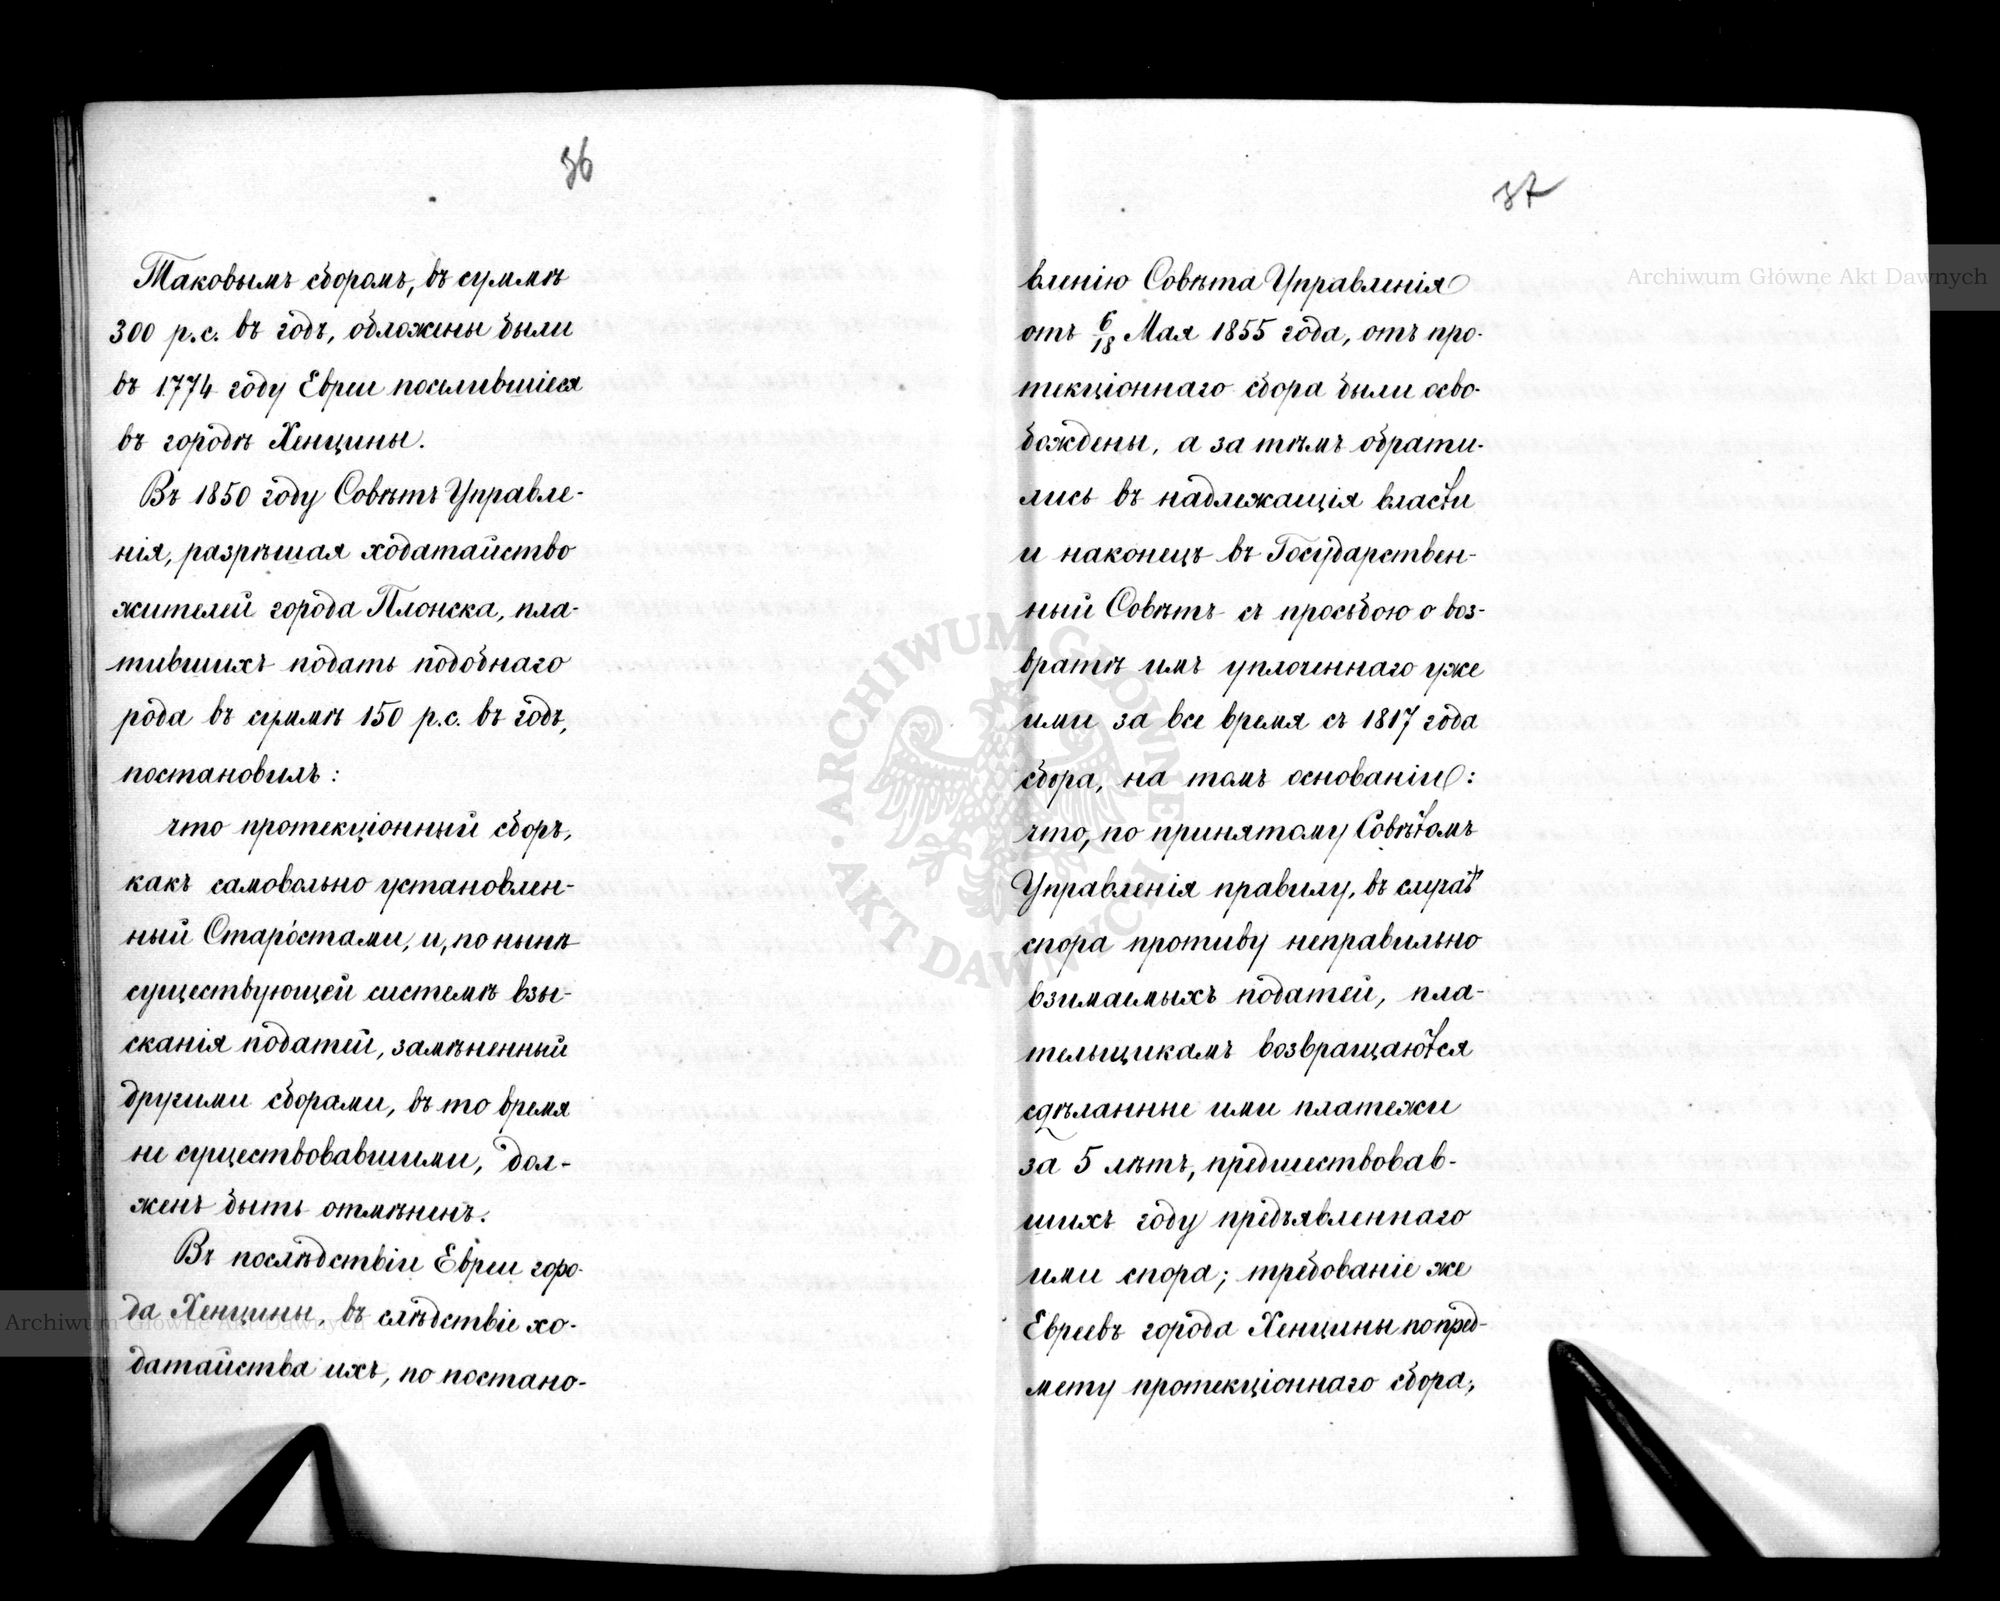 36
Таковымъ сборомъ, въ суммѣ
300 р.с. въ годъ, обложены были
въ 1774 году Евреи поселившіеся
въ городѣ Хенцины.
Въ 1850 году Совѣтъ Управле-
нія, разрѣшая ходатайство
жителей города Плонска, пла-
тившихъ подать подобнаго
рода въ суммѣ 150 р.с. въ годъ,
постановилъ:
что протекціонный сборъ,
какъ самовольно установлен-
ный Старостами, и, по нынѣ
существующей системѣ взы-
сканія податей, замѣненный
другими сборами, въ то время
не существовавшими, дол-
женъ быть отмѣненъ.
Въ послѣдствіи Евреи горо-
да Хенцины, въ слѣдствіе хо-
датайства ихъ, по постано-
37
вленію Совѣта Управленія
отъ 6/18 Мая 1855 года, отъ про-
текціоннаго сбора были осво-
бождены, а за тѣмъ обрати-
лись въ надлежащія власти
и наконецъ въ Государствен-
ный Совѣтъ съ просьбою о воз-
вратѣ имъ уплоченнаго уже
ими за все время съ 1817 года
сбора, на томъ основаніи:
что, по принятому Совѣтомъ
Управленія правилу, въ случаѣ
спора противу неправильно
взимаемыхъ податей, пла-
тельщикамъ возвращаются
сдѣланные ими платежи
за 5 лѣтъ, предшествовав-
шихъ году предъявленнаго
ими спора; требованіе же
Евреевъ города Хенцины по пред-
мету протекціоннаго сбора,
Archiwum Główne Akt Dawnych
Archiwum Główne Akt Dawnych
ARCHIWUM GŁÓWNE AKT DAWNYCH